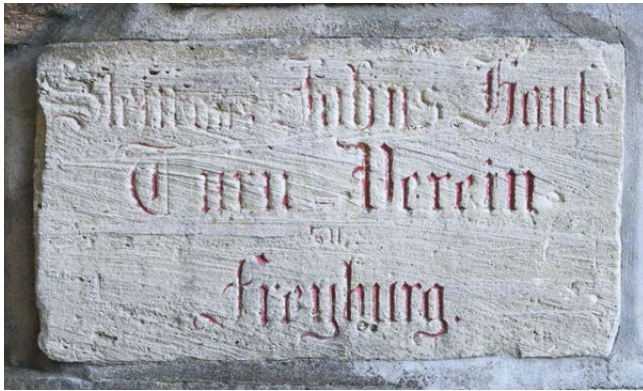 Stein aus Jahns Hause
Turn-Verein
zu
Freyburg.